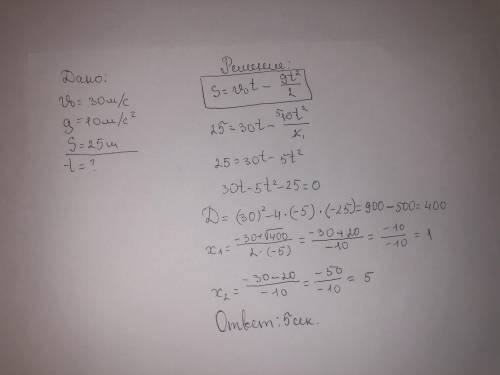 Дано:
v₀ = 30 м/с
g = 10 м/с²
S = 25 м
t = ?
Решение:
S = v₀t − gt²/2
25 = 30t − ⁵10t²/2₁
25 = 30t − 5t²
30t − 5t² − 25 = 0
D = (30)² − 4 · (−5) · (−25) = 900 − 500 = 400
x₁ = −30+√400 / 2·(−5) = −30+20 / −10 = −10 / −10 = 1
x₂ = −30−20 / −10 = −50 / −10 = 5
Ответ: 5 сек.